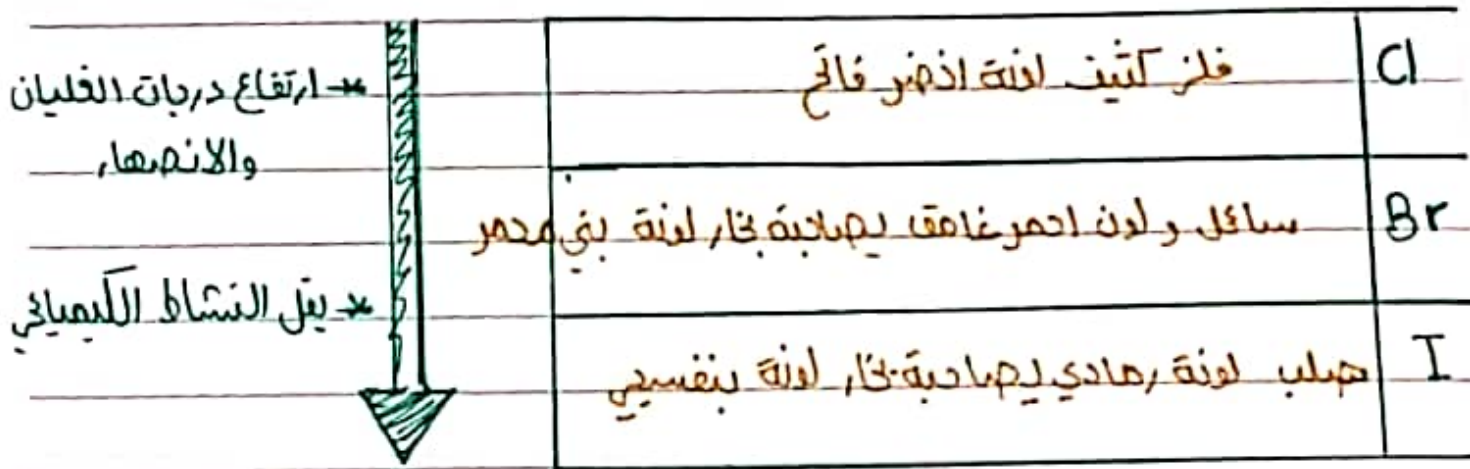 Cl
فلز كثيف لونة اخضر فاتح
Br
سائل ولون احمر غامق يصاحبة بخار لونة بني محمر
I
صلب لونة رمادي يصاحبة بخار لونة بنفسيجي
* ارتفاع درجات الغليان
والانصهار
* يقل النشاط الكيميائي